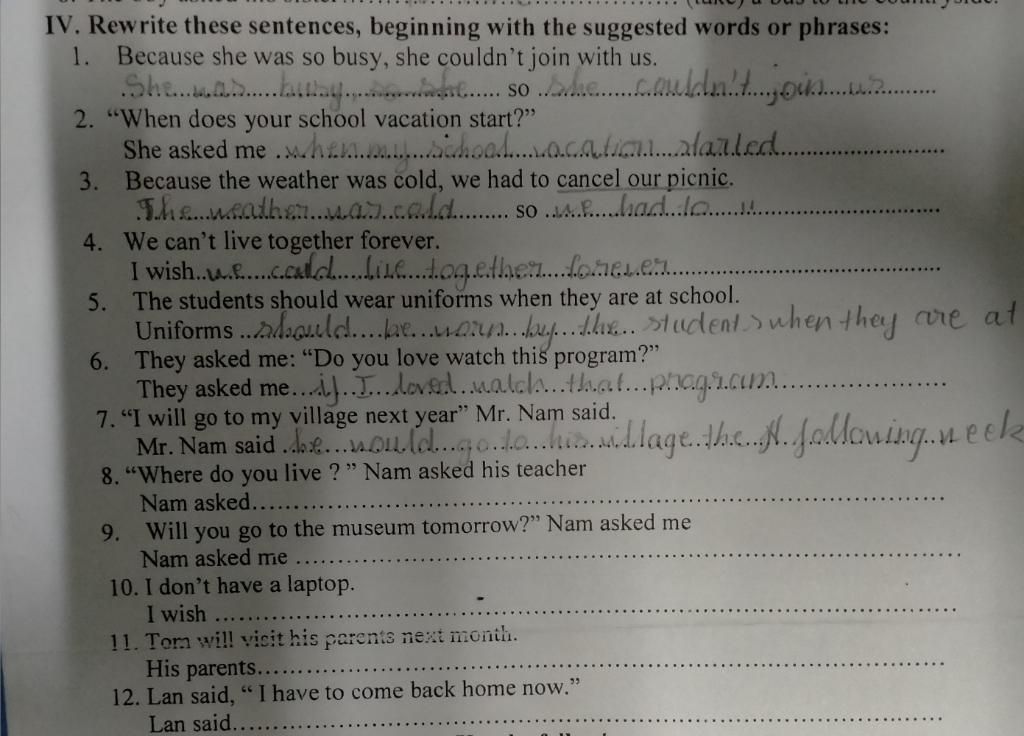 (take) a bus to the countryside.
IV. Rewrite these sentences, beginning with the suggested words or phrases:
1. Because she was so busy, she couldn't join with us.
She was busy, so she so she couldn't join us
2. "When does your school vacation start?"
She asked me when my school vacation started
3. Because the weather was cold, we had to cancel our picnic.
The weather was cold so we had to "
4. We can't live together forever.
I wish we could live together forever
5. The students should wear uniforms when they are at school.
Uniforms should be worn by the students when they are at
6. They asked me: "Do you love watch this program?"
They asked me if I loved watch that program
7. "I will go to my village next year" Mr. Nam said.
Mr. Nam said he would go to his village the following week
8. "Where do you live ? " Nam asked his teacher
Nam asked
9. Will you go to the museum tomorrow?" Nam asked me
Nam asked me
10. I don't have a laptop.
I wish
11. Tom will visit his parents next month.
His parents
12. Lan said, " I have to come back home now."
Lan said